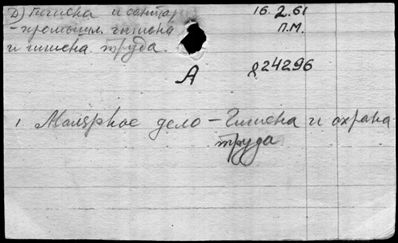 D) Гигиена и санитар 16.2.61
-промышл. гигиена П.М.
и гигиена труда.
А
24296
1 Малярное дело – Гигиена и охрана
труда